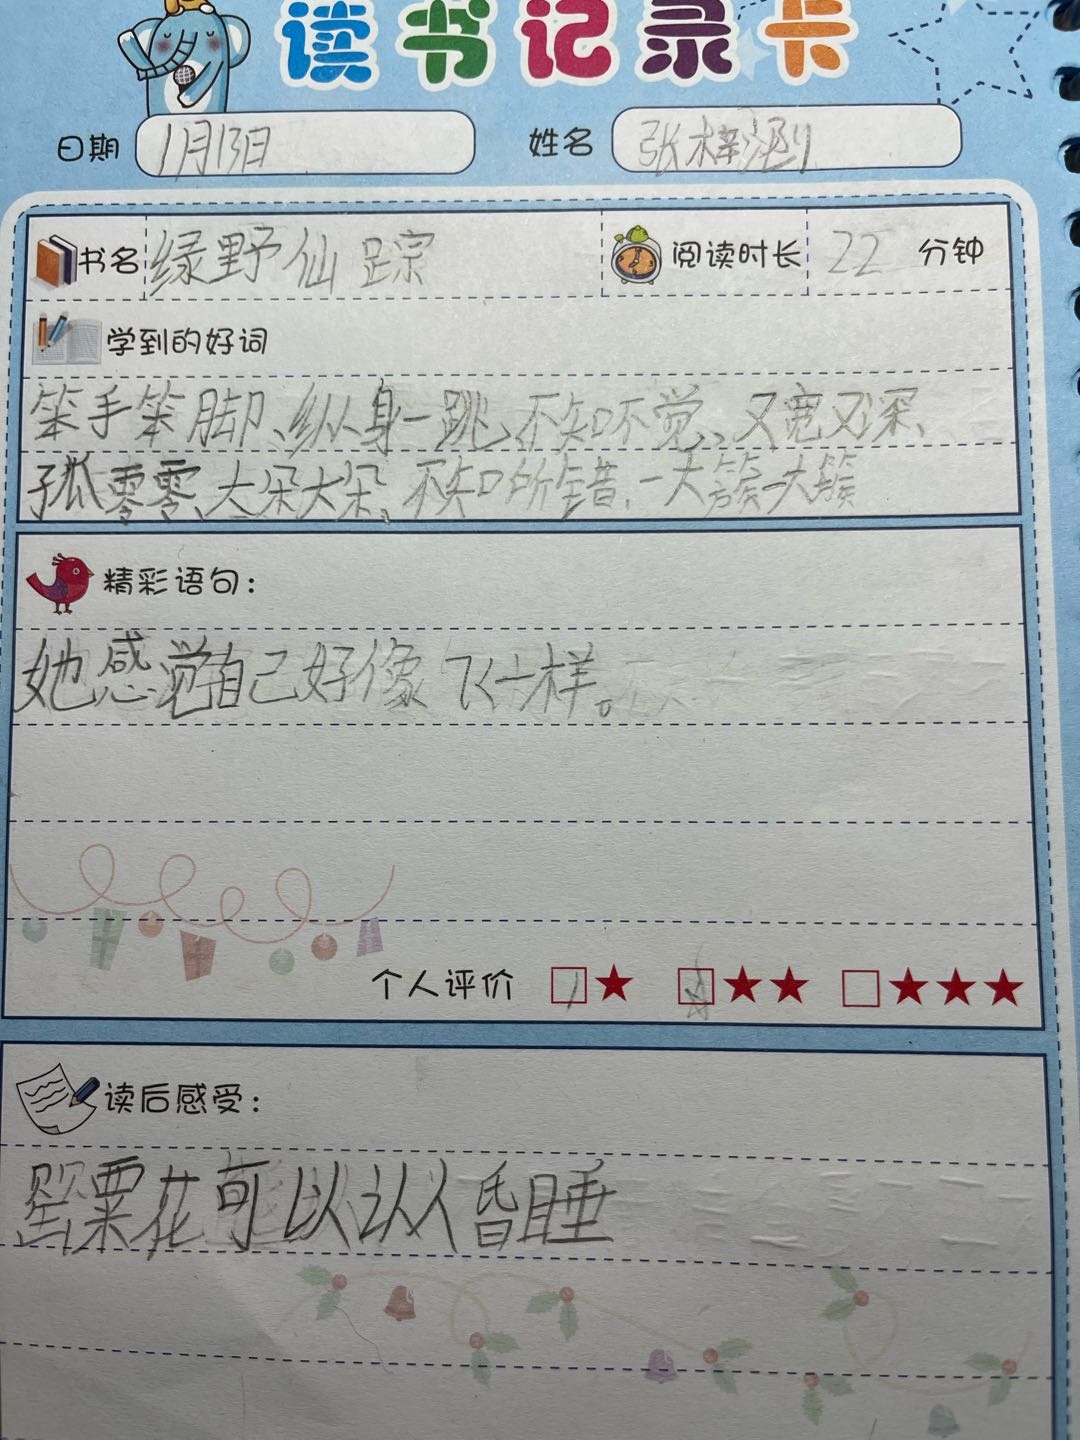 读书记录卡
日期 1月13日 姓名 张梓渊
书名 绿野仙踪 阅读时长 22 分钟
学到的好词
笨手笨脚、纵身一跳、不知不觉、又宽又深、
孤零零、大朵大朵、不知所错、一大簇一大簇
精彩语句：
她感觉自己好像飞一样。
个人评价
读后感受：
罂粟花可以认人昏睡